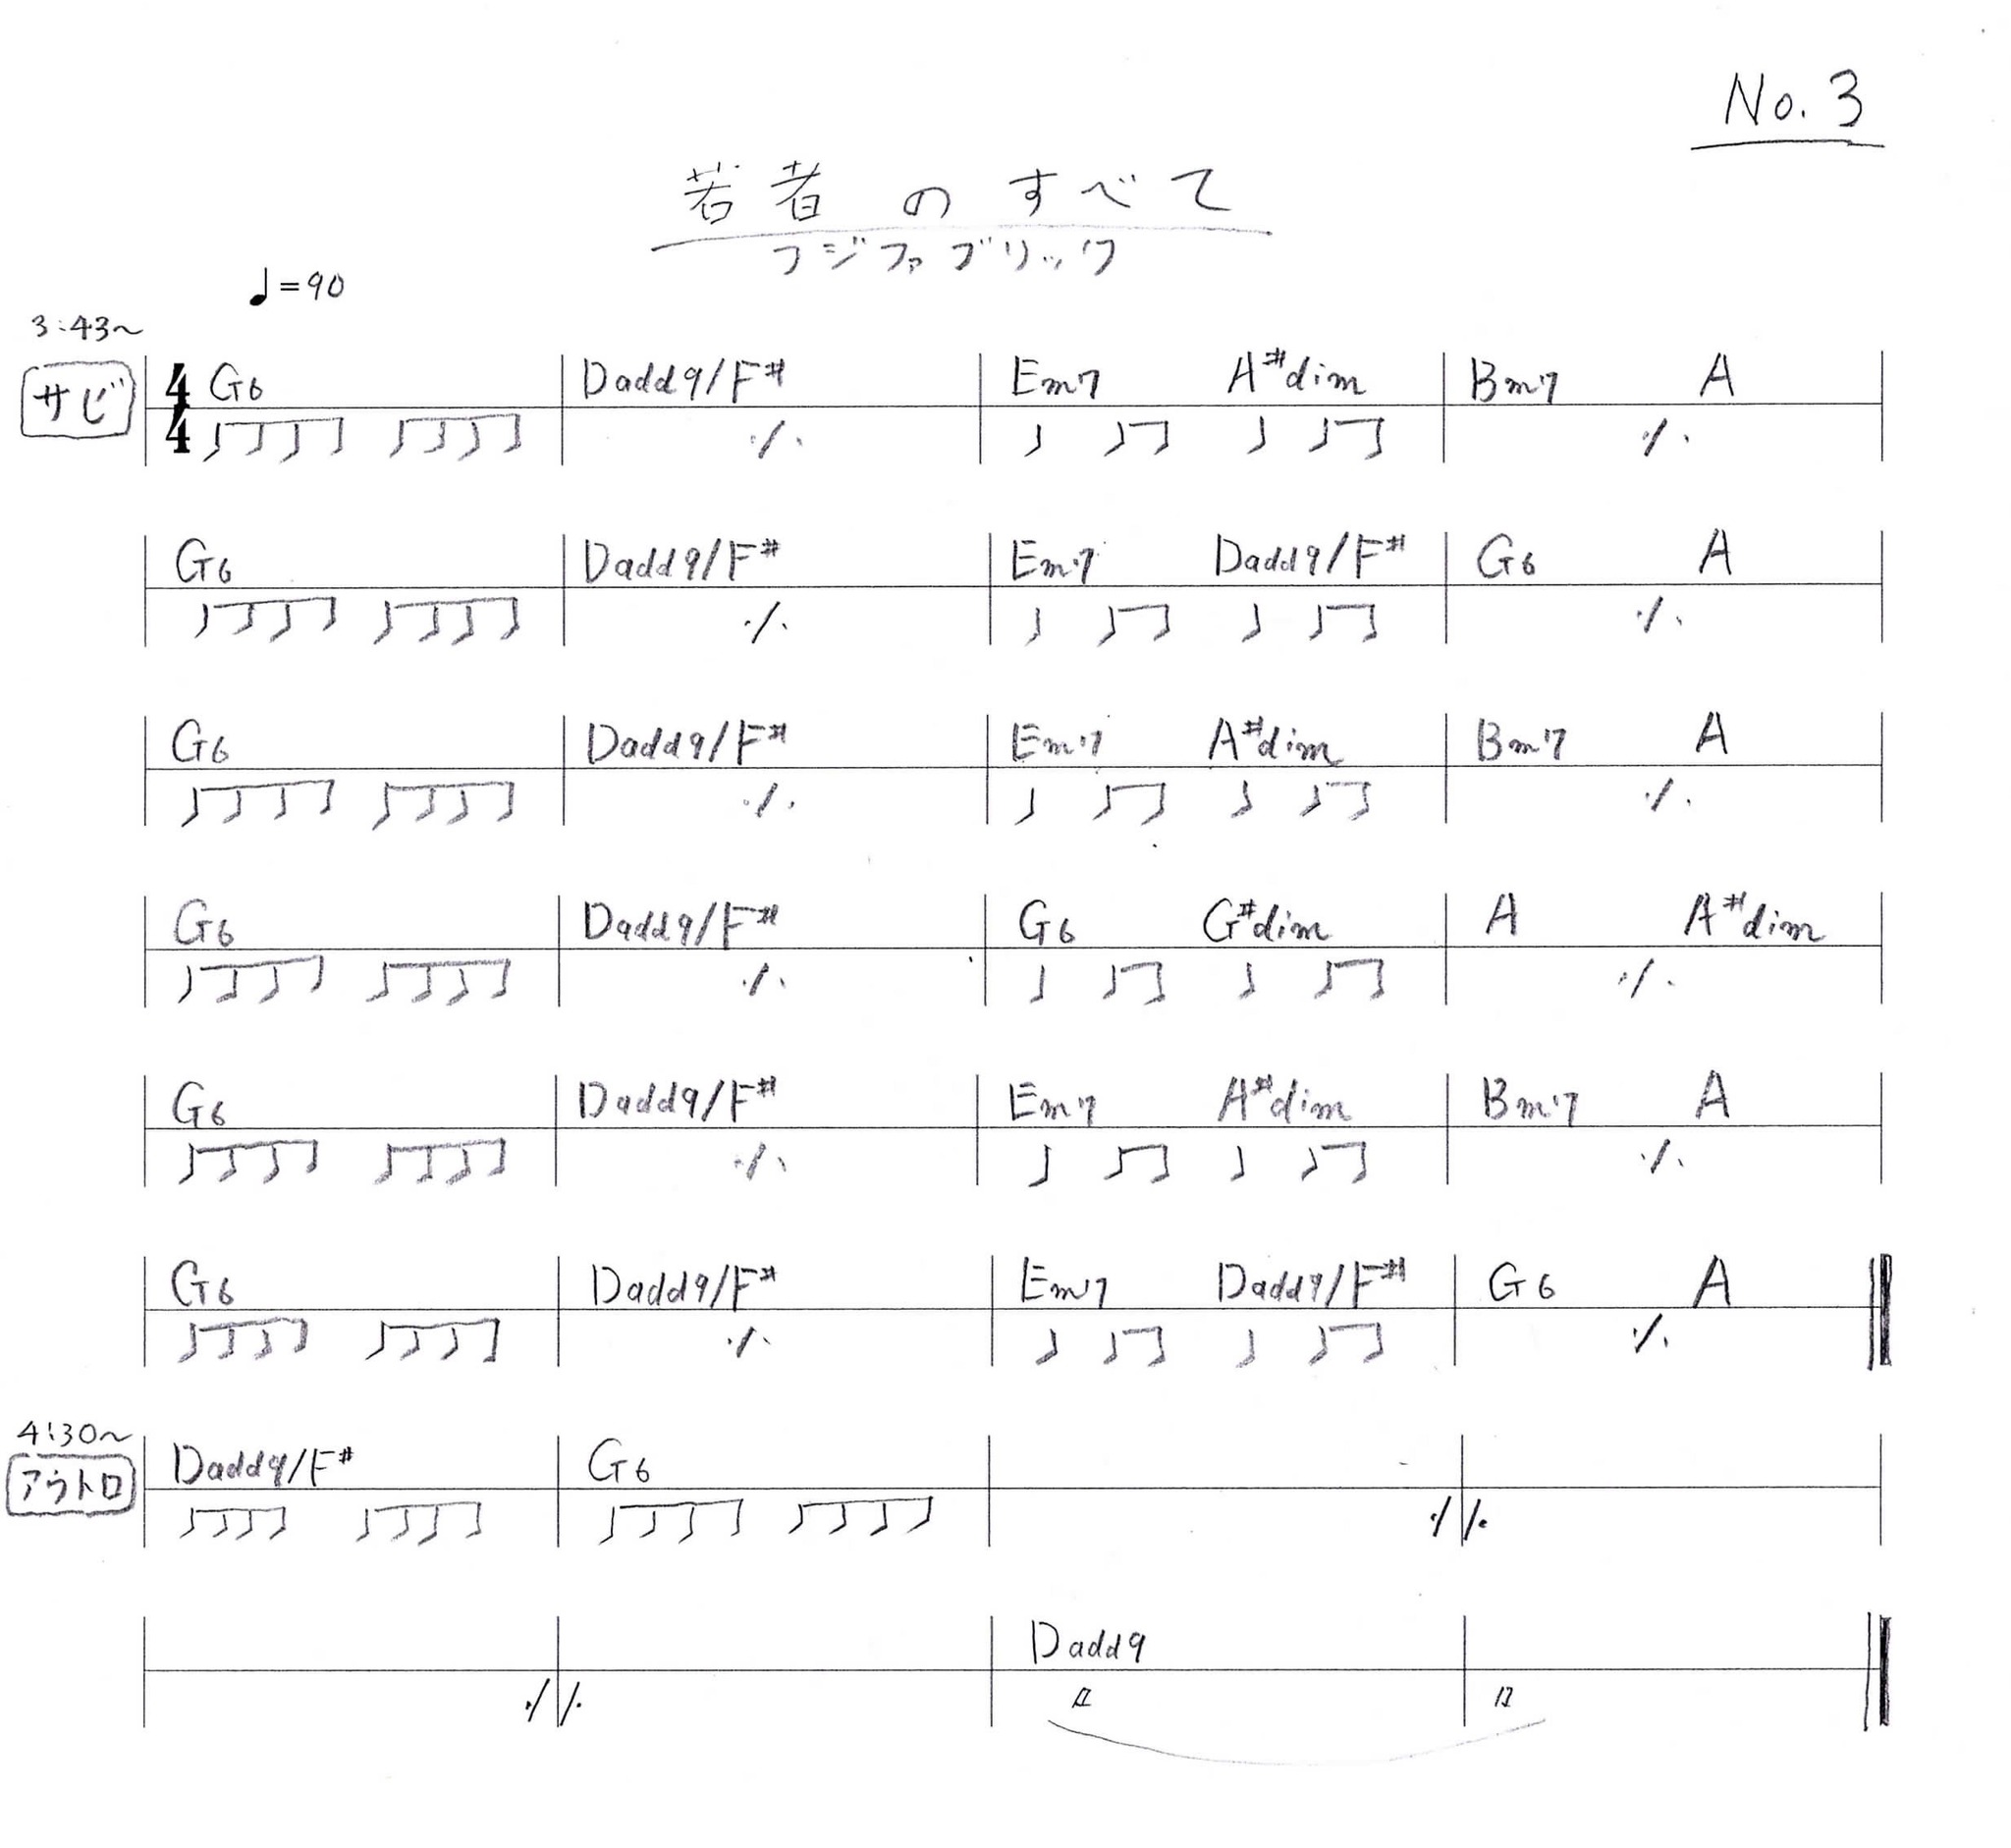 No. 3
若者のすべて
フジファブリック
♩=90
3:43~
サビ 4/4 G6 Dadd9/F# Em7 A#dim Bm7 A
G6 Dadd9/F# Em7 Dadd9/F# G6 A
G6 Dadd9/F# Em7 A#dim Bm7 A
G6 Dadd9/F# G6 G#dim A A#dim
G6 Dadd9/F# Em7 A#dim Bm7 A
G6 Dadd9/F# Em7 Dadd9/F# G6 A
4:30~
アウトロ Dadd9/F# G6
Dadd9